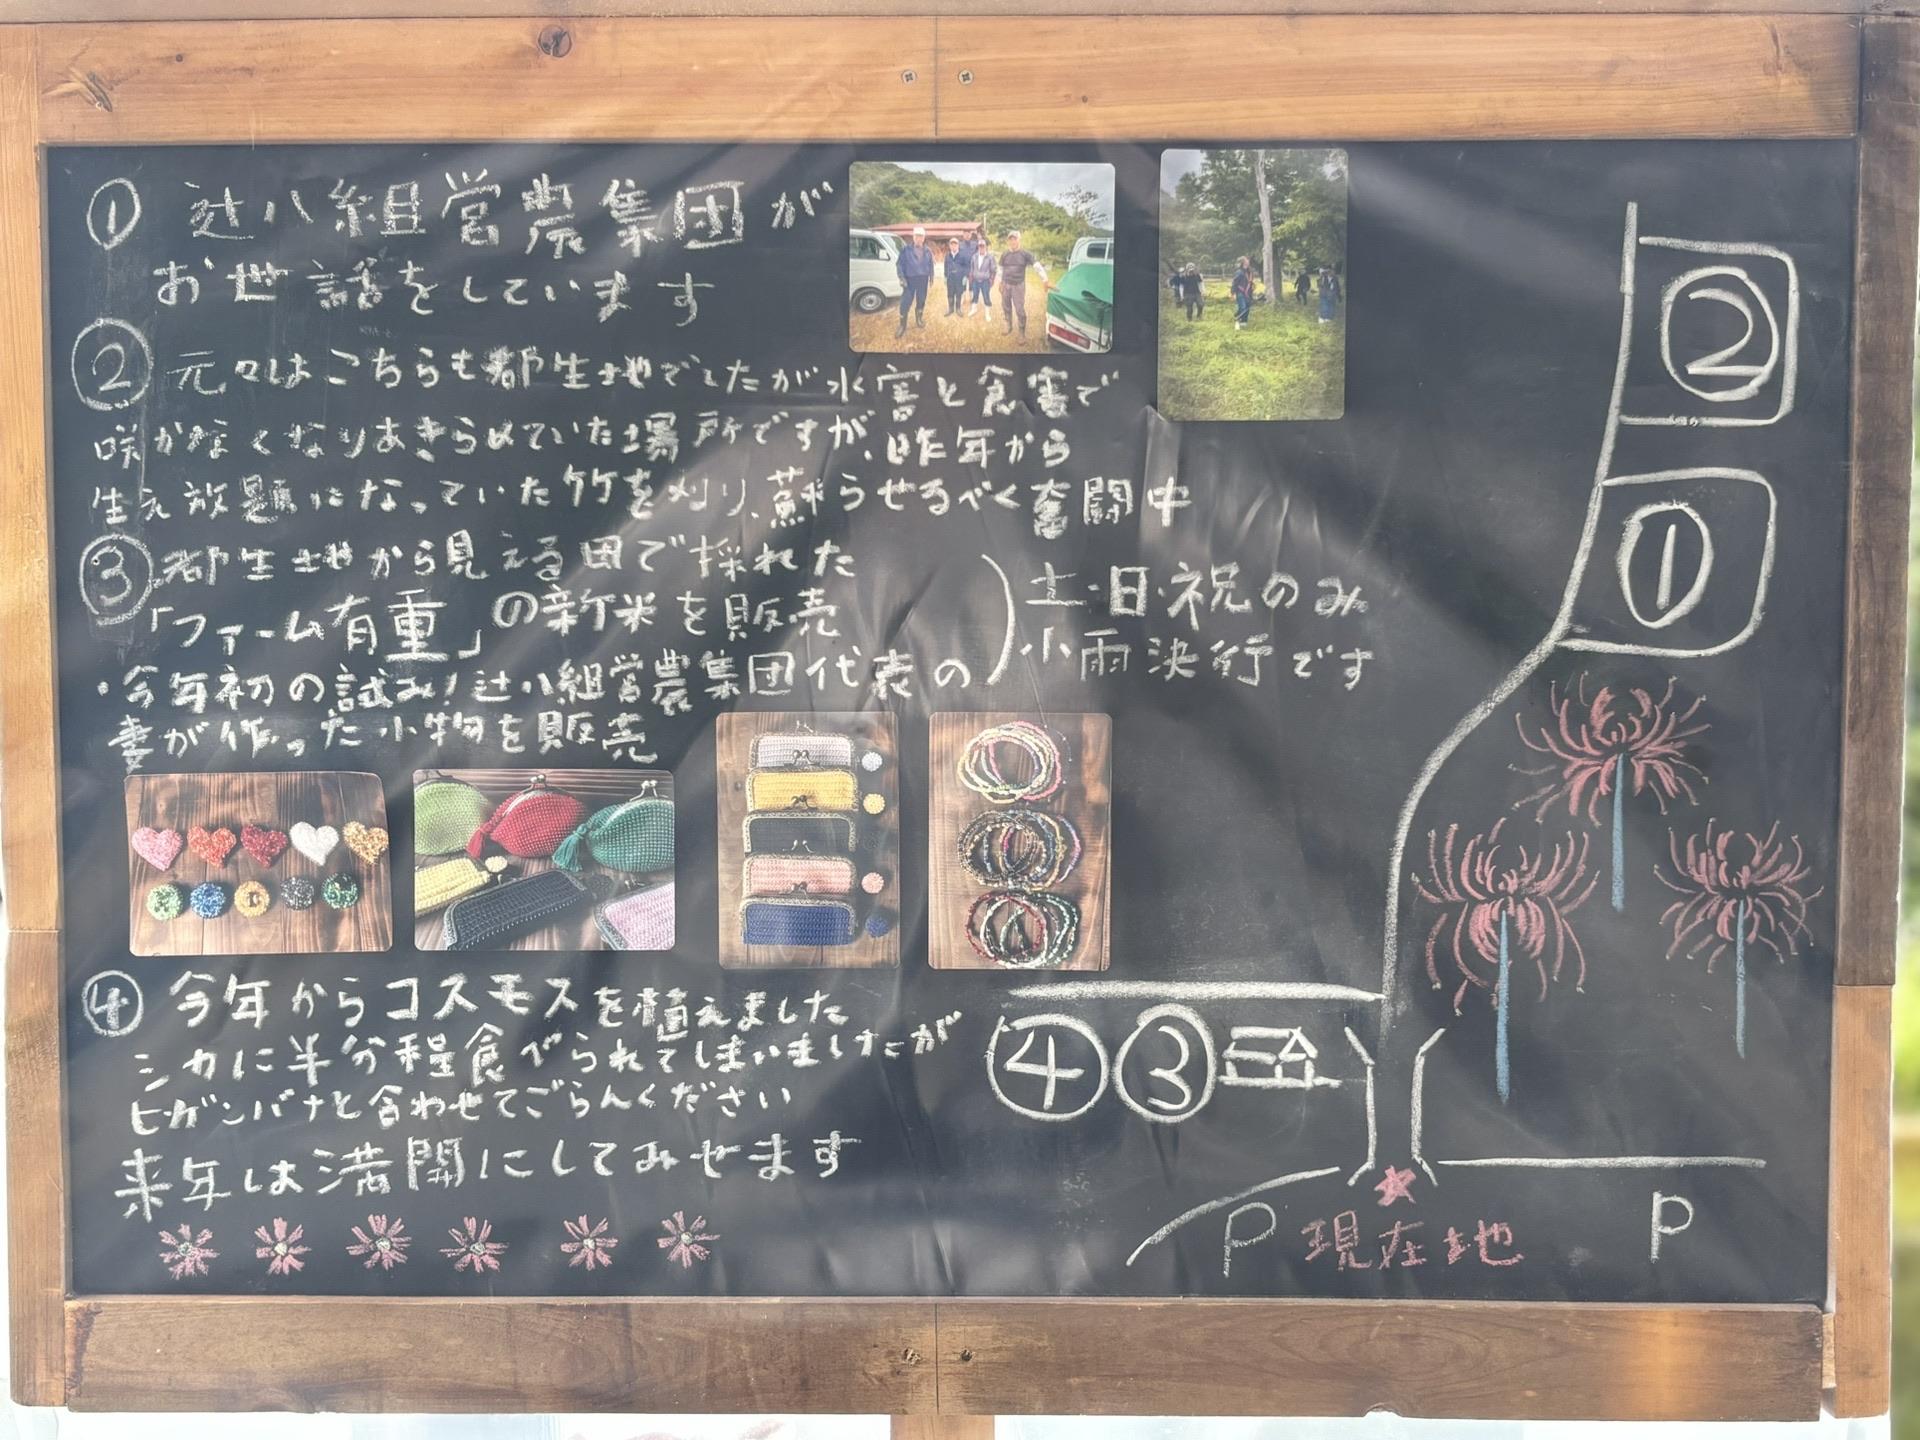 ① 辻八組営農集団が
お世話をしています
② 元々はこちらも群生地でしたが水害と食害で
咲かなくなりあきらめていた場所ですが、昨年から
生え放題になっていた竹を刈り、蘇らせるべく奮闘中
③ 群生地から見える田で採れた
「ファーム有重」の新米を販売
・今年初の試み！辻八組営農集団代表の
妻が作った小物を販売
) 土・日・祝のみ
小雨決行です
④ 今年からコスモスを植えました
シカに半分程食べられてしまいましたが
ヒガンバナと合わせてごらんください
来年は満開にしてみせます
②
①
④ ③
P 現在地 P